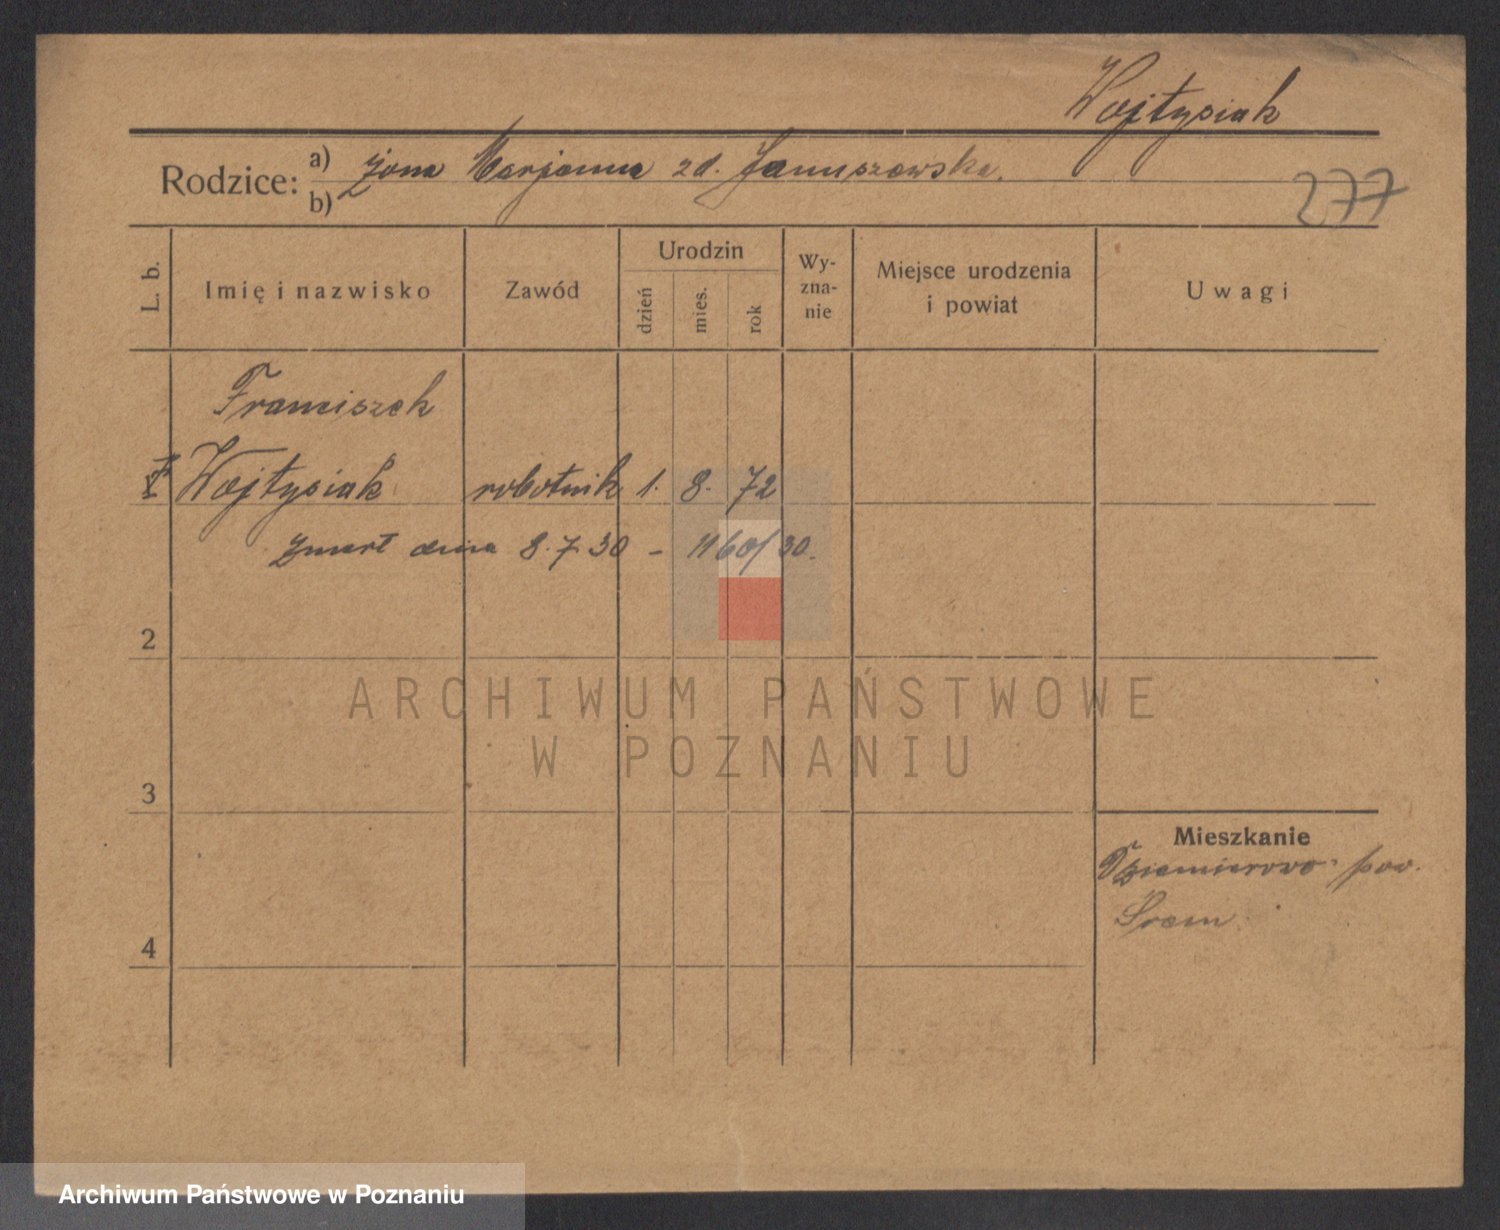 Wojtysiak
Rodzice: a) żona Marjanna zd. Januszewska.
b)
277
L. b.
Imię i nazwisko
Zawód
Urodzin
dzień
mies.
rok
Wy-
zna-
nie
Miejsce urodzenia
i powiat
Uwagi
Franciszek
Wojtysiak robotnik 1. 8. 72
zmarł dnia 8.7.30 - 1160/30.
2
3
4
Mieszkanie
pow.
Śrem
ARCHIWUM PAŃSTWOWE
W POZNANIU
Archiwum Państwowe w Poznaniu